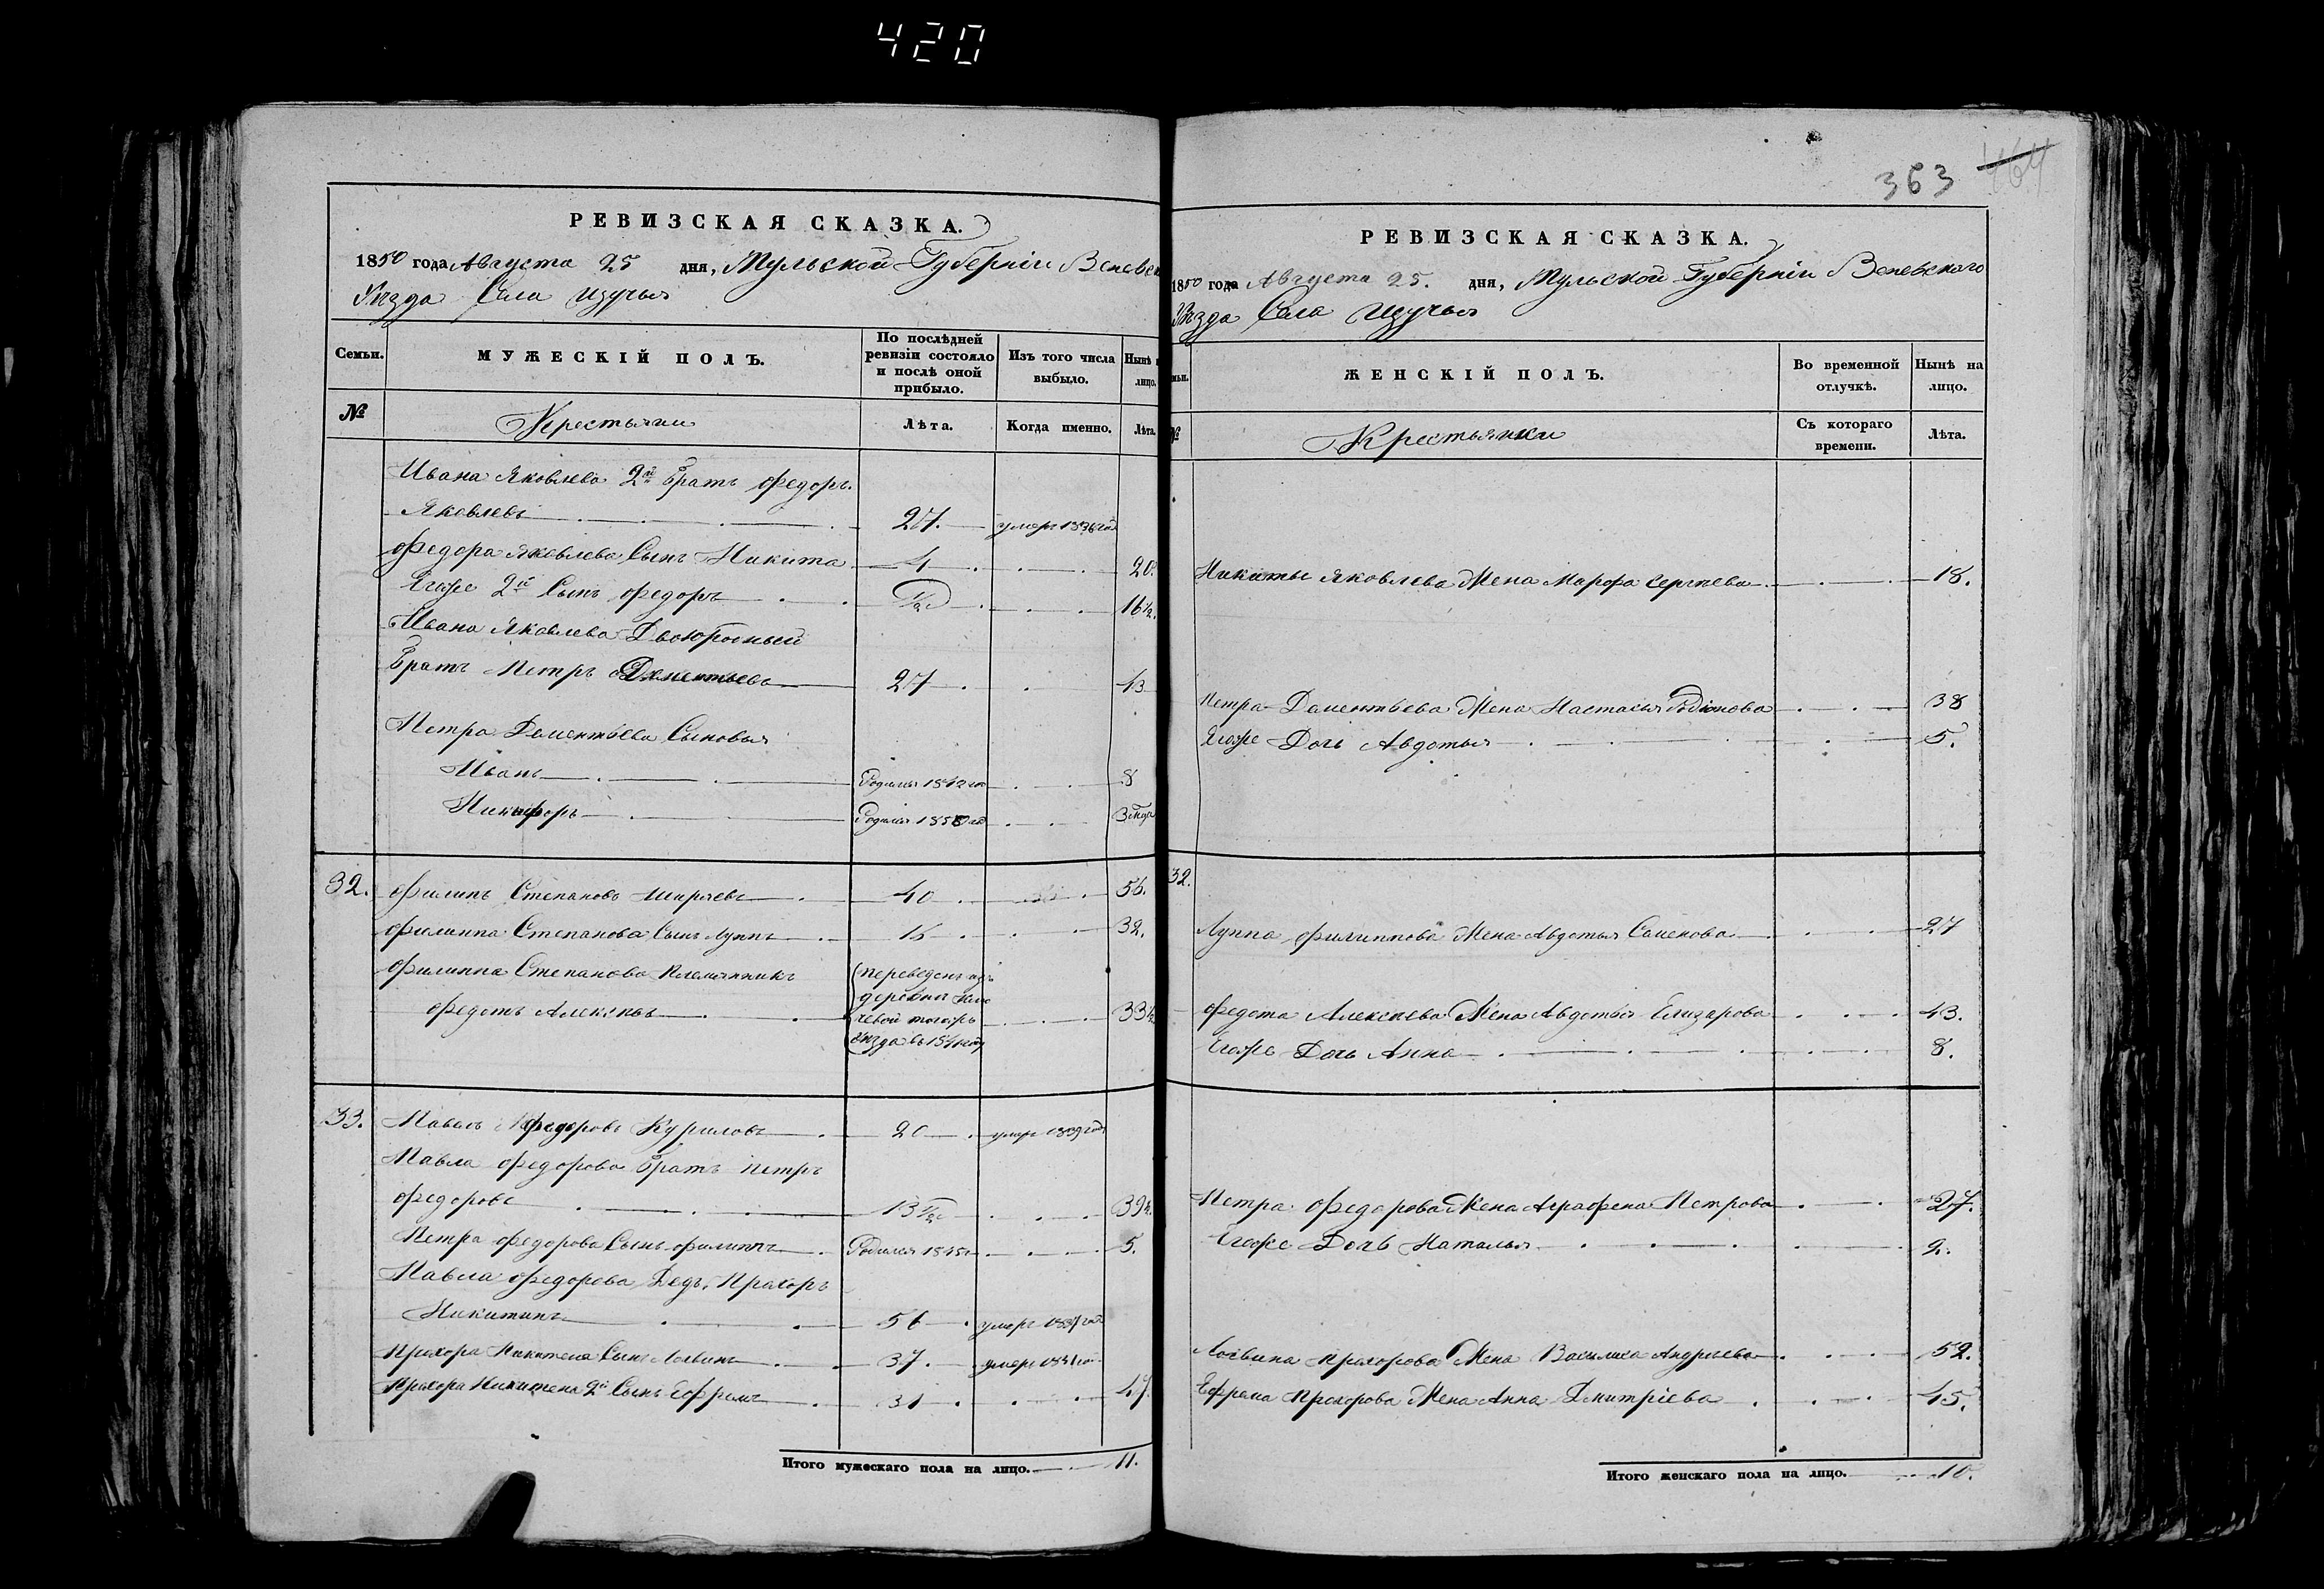 420
РЕВИЗСКАЯ СКАЗКА.
1850 года Августа 25 дня, Тульской Губерніи Веневск
Уѣзда Села Изучья
Семьи.
МУЖЕСКІЙ ПОЛЪ.
По послѣдней ревизіи состояло и послѣ оной прибыло.
Изъ того числа выбыло.
Нынѣ лицо.
№
Крестьяни
Лѣта.
Когда именно.
Лѣта.
Ивана Яковлева 2й братъ Федоръ
Яковлевъ 27. умеръ год
Федора Яковлева Сынъ Никита 4 20.
Егоже 2й Сынъ Федоръ 1/2 16 1/2.
Ивана Яковлева Двоюродный
братъ Петръ Дементьевъ 27 43
Петра Дементьева Сыновья
Иванъ Родился 1842 8
Никифоръ Родился 1850
32. Филипъ Степановъ Ширяевъ 40 56.
Филиппа Степанова Сынъ Луппъ 16 32.
Филиппа Степанова Племянникъ (переведенъ изъ
деревни
Федотъ Алексѣевъ 33
уѣзда въ
33. Павелъ Федоровъ Куриловъ 20 умеръ 1839 года
Павла Федорова братъ Петръ
Федоровъ 13 1/2
Петра Федорова Сынъ Филиппъ Родился 1845 5.
Павла Федорова Дедъ Прахоръ
Никитинъ 56 умеръ 1837 год
Прохора Никитина Сынъ Логвинъ 37. умеръ
Прахора Никитина 2й Сынъ Ефремъ 31 47.
Итого мужескаго пола на лицо. 11.
363 464
РЕВИЗСКАЯ СКАЗКА.
1850 года Августа 25. дня, Тульской Губерніи Веневскаго
Уѣзда Села Изучья
ЖЕНСКІЙ ПОЛЪ.
Во временной отлучкѣ.
Нынѣ на лицо.
№
Крестьянки
Съ котораго времени.
Лѣта.
Никиты Яковлева Жена Марфа Сергѣева 18.
Петра Дементьева Жена Настасья Родіонова 38
Егоже Дочь Авдотья 5.
32.
Луппа Филиппова Жена Авдотья Семенова 27
Федота Алексѣева Жена Авдотья Елизарова 43.
Егоже Дочь Анна 8.
Петра Федорова Жена Аграфена Петрова 27.
Егоже Дочь Наталья
Логвина Прахорова Жена Василиса Андрѣева 52.
Ефрема Прохорова Жена Анна Дмитріева 45.
Итого женскаго пола на лицо. 10.